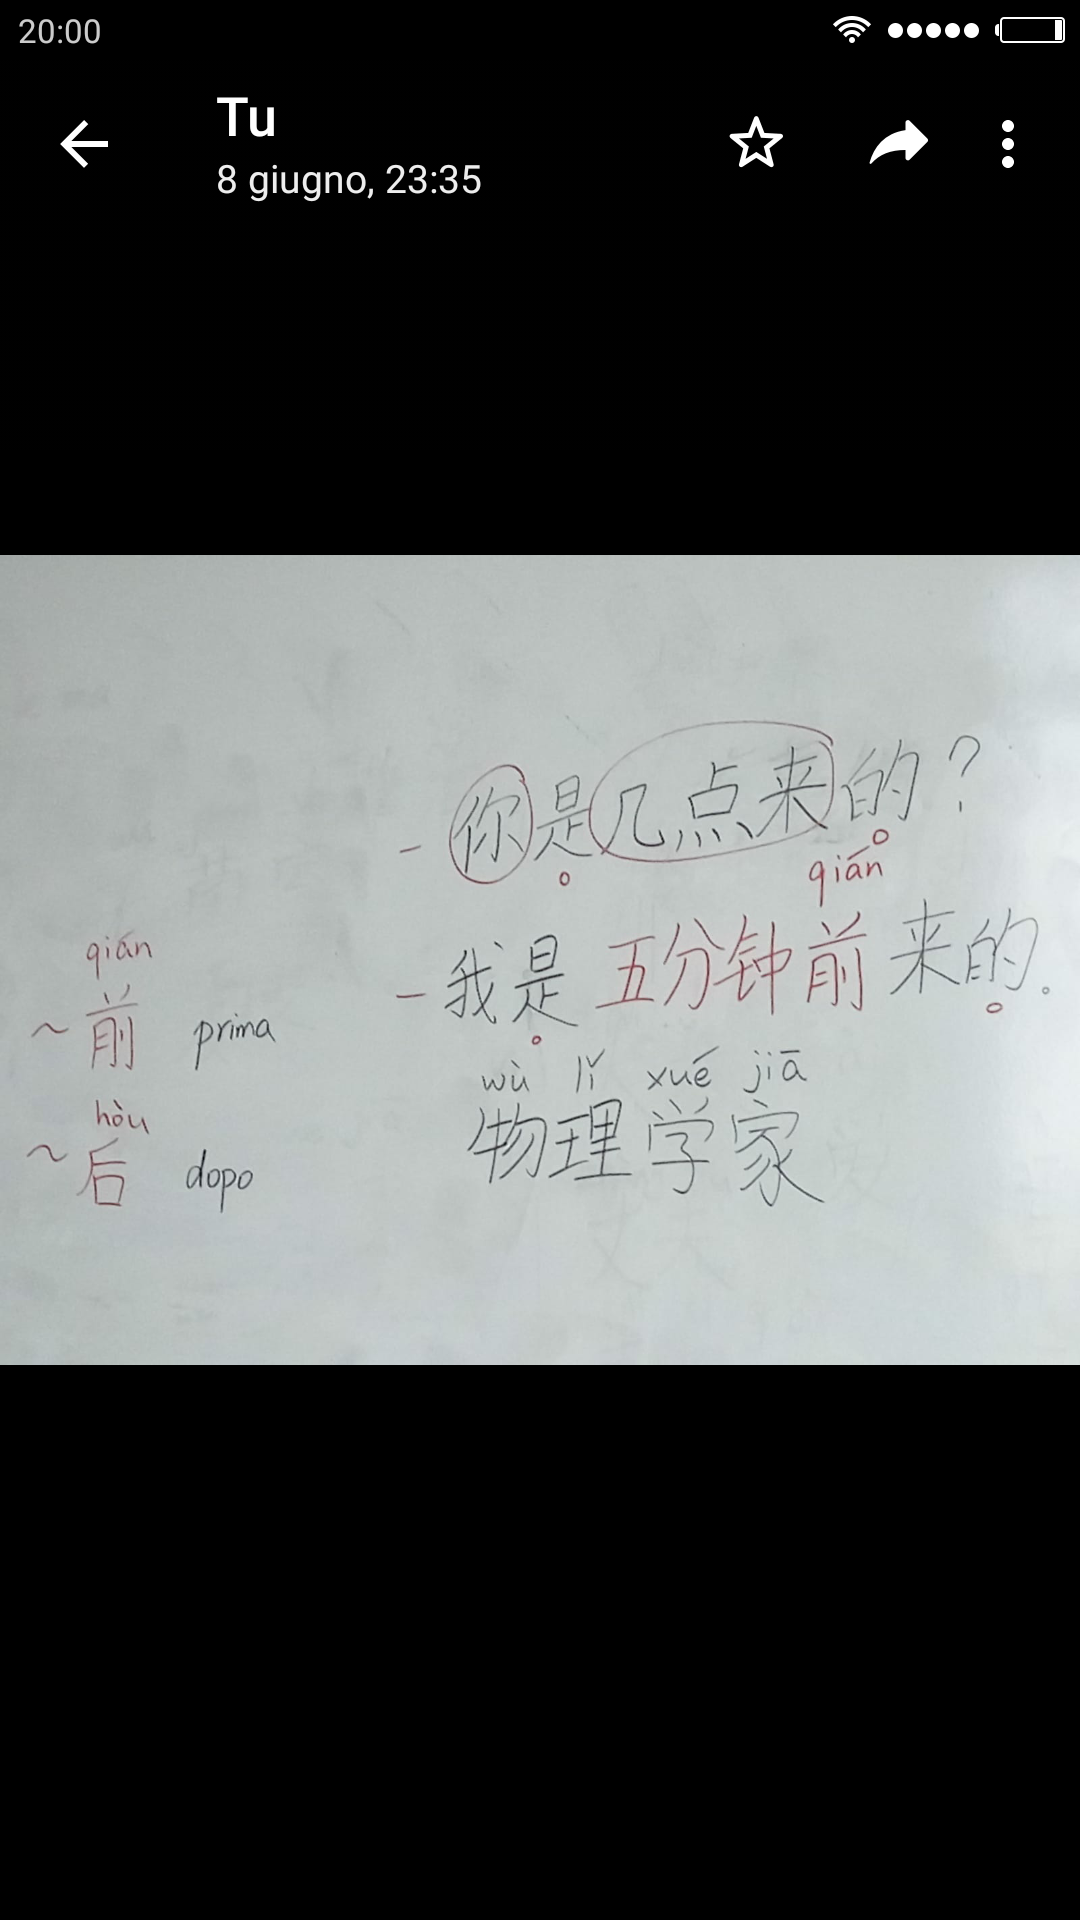 20:00
Tu
8 giugno, 23:35
- 你是几点来的?
qián
- 我是五分钟前来的。
qián
~前 prima
hòu
~后 dopo
wù lǐ xué jiā
物理学家